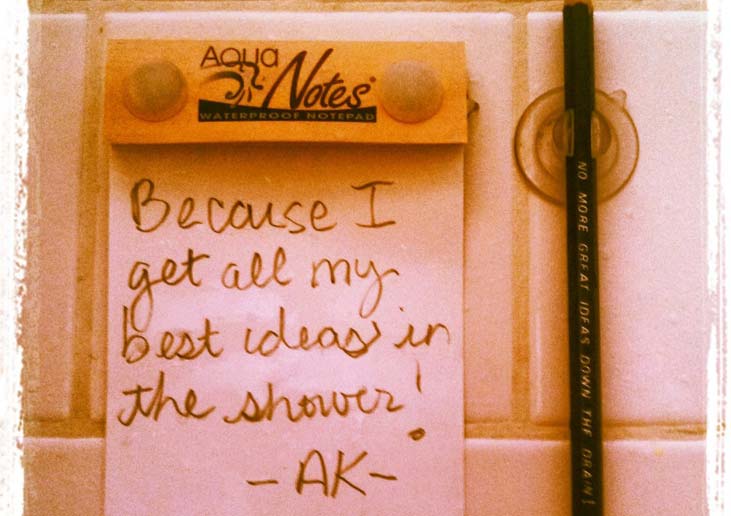 AQUA
Notes®
WATERPROOF NOTEPAD
Because I
get all my
best ideas in
the shower!
-AK-
NO MORE GREAT IDEAS DOWN THE DRAIN!